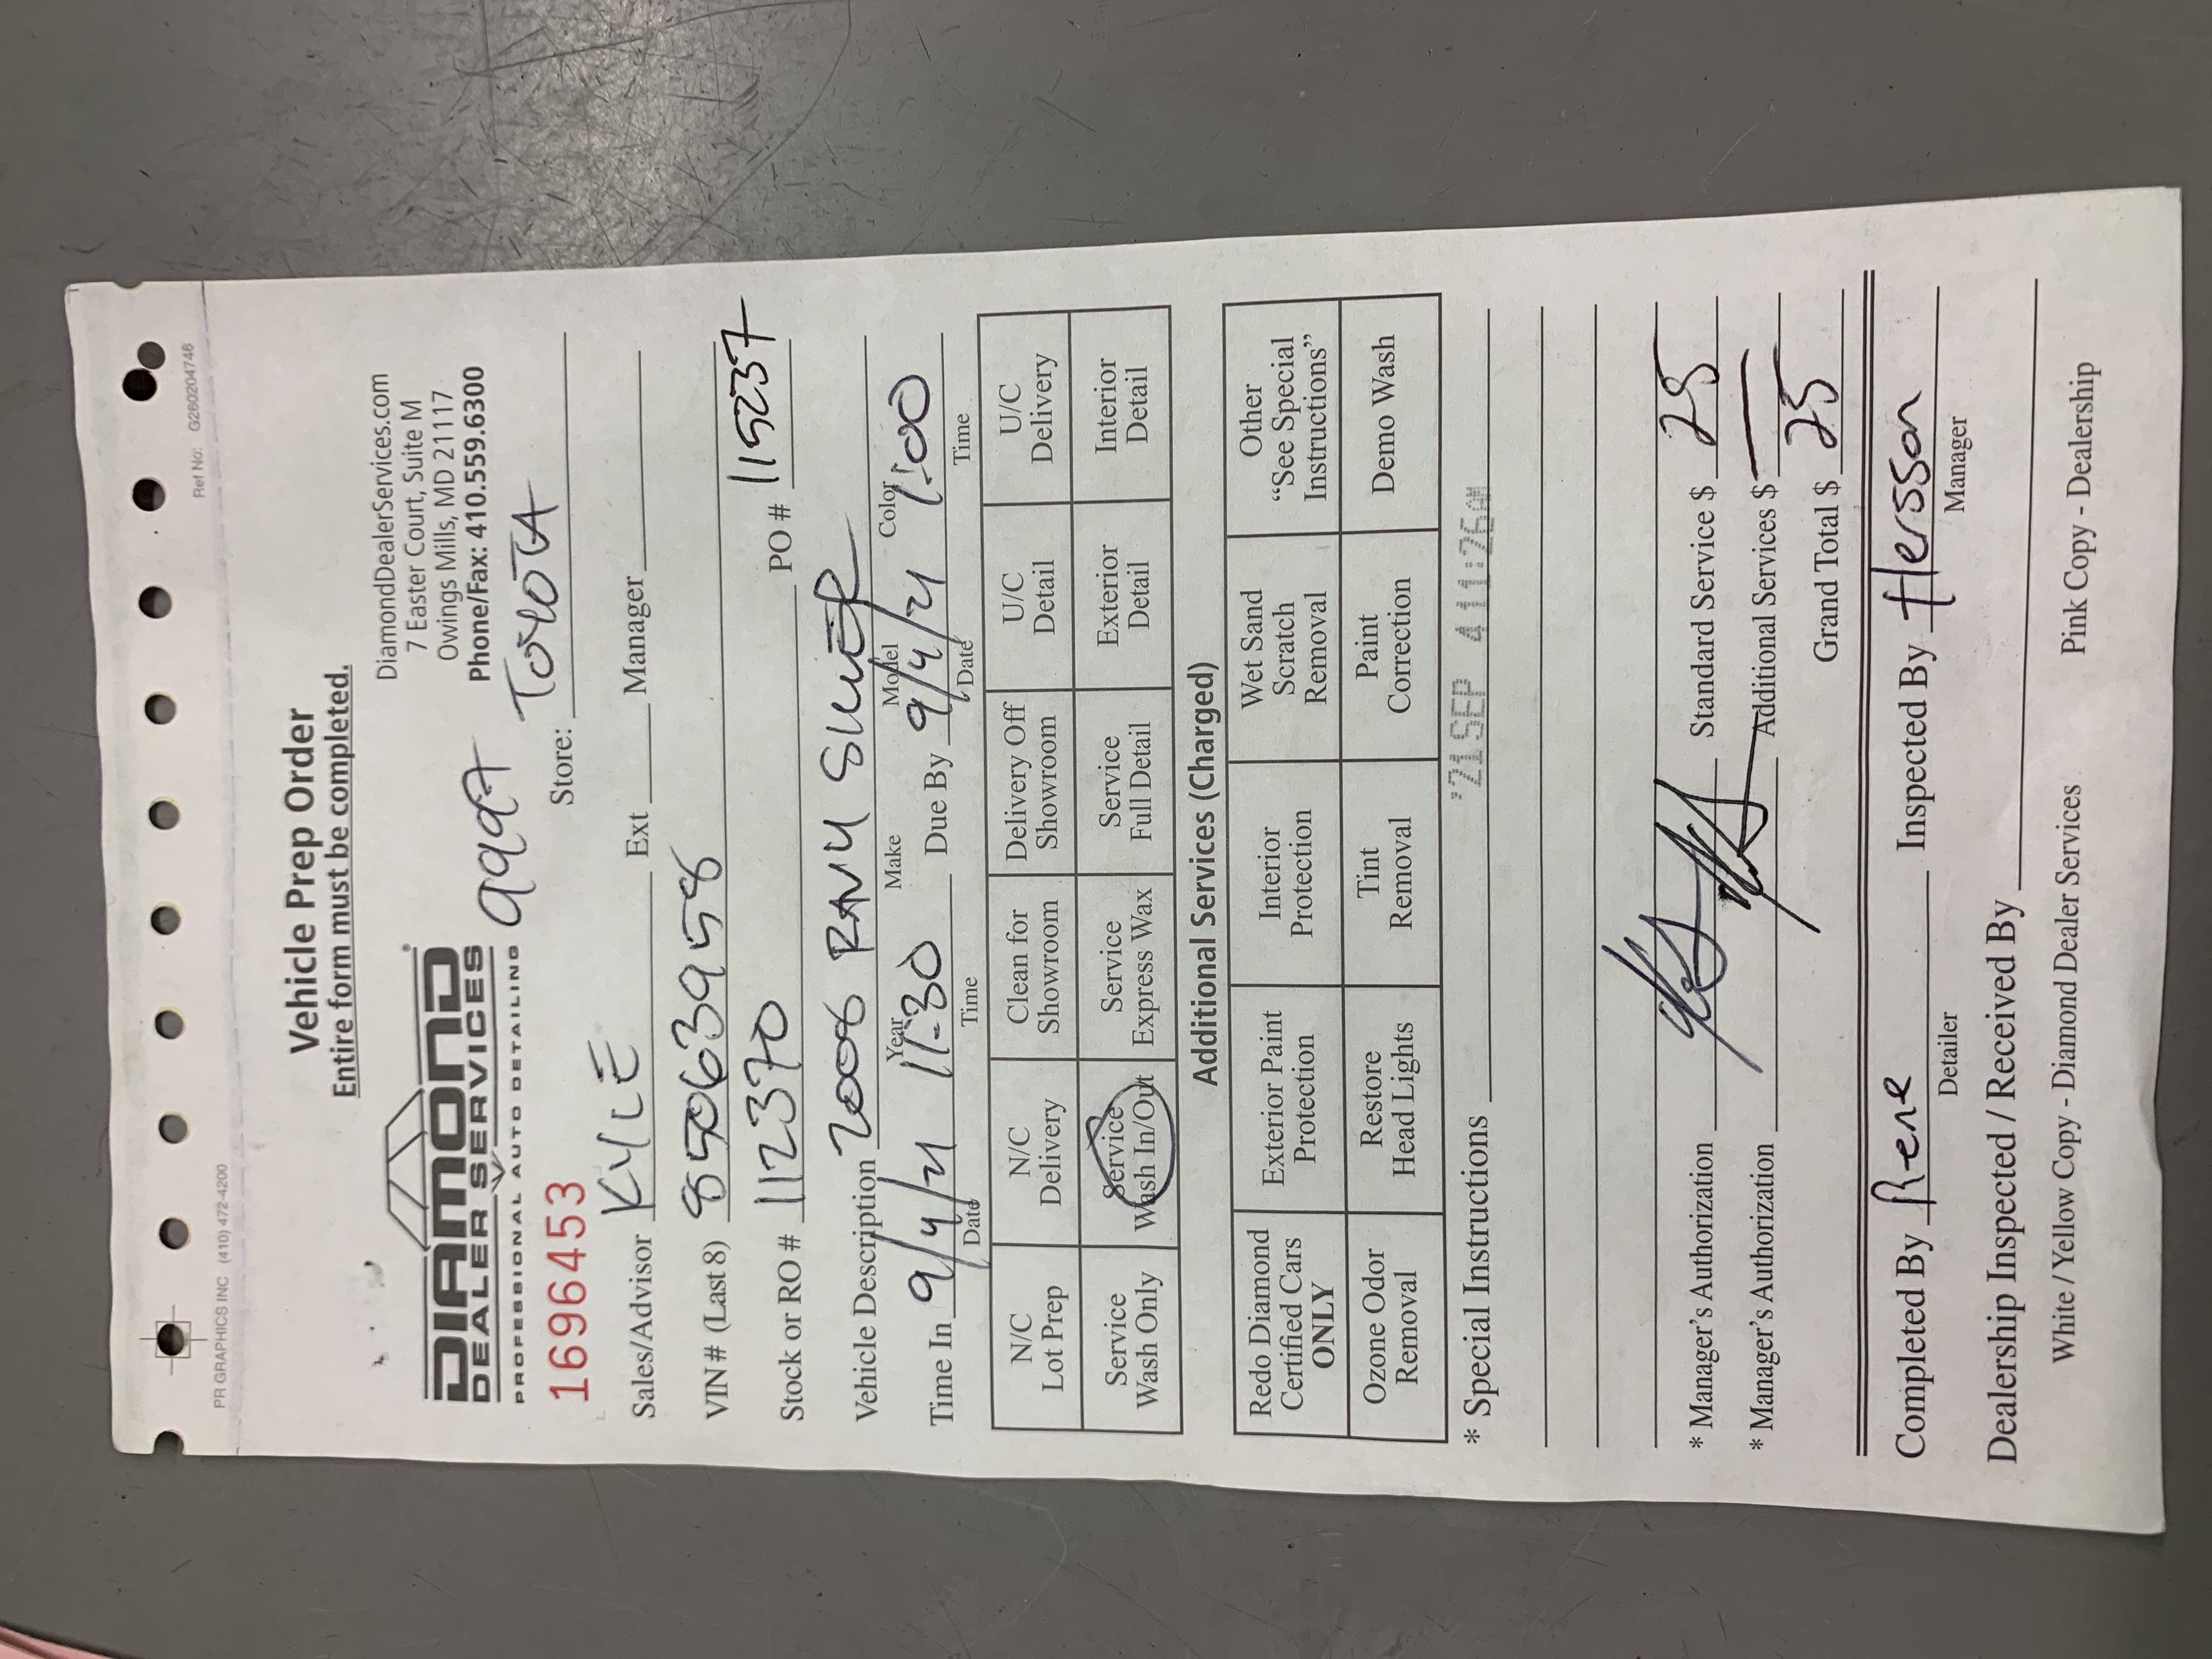 PR GRAPHICS INC (410) 472-4200 Ref No: G260204746
Vehicle Prep Order
Entire form must be completed.
DIAMOND®
DEALER SERVICES
PROFESSIONAL AUTO DETAILING
DiamondDealerServices.com
7 Easter Court, Suite M
Owings Mills, MD 21117
Phone/Fax: 410.559.6300
1696453
Store: TOYOTA
Sales/Advisor KYLE Ext Manager
VIN # (Last 8) 85063958
Stock or RO # 112370 PO # 115237
Vehicle Description 2006 RAV4 SILVER
Year Make Model Color
Time In 9/4/21 11:30 Due By 9/4/21 1:00
Date Time Date Time
N/C Lot Prep N/C Delivery Clean for Showroom Delivery Off Showroom U/C Detail U/C Delivery
Service Wash Only Service Wash In/Out Service Express Wax Service Full Detail Exterior Detail Interior Detail
Additional Services (Charged)
Redo Diamond Certified Cars ONLY Exterior Paint Protection Interior Protection Wet Sand Scratch Removal Other "See Special Instructions"
Ozone Odor Removal Restore Head Lights Tint Removal Paint Correction Demo Wash
* Special Instructions
'21SEP 4 11:26AM
* Manager's Authorization Standard Service $ 25
* Manager's Authorization Additional Services $ —
Grand Total $ 25
Completed By Rene Inspected By Hersson
Detailer Manager
Dealership Inspected / Received By
White / Yellow Copy - Diamond Dealer Services Pink Copy - Dealership